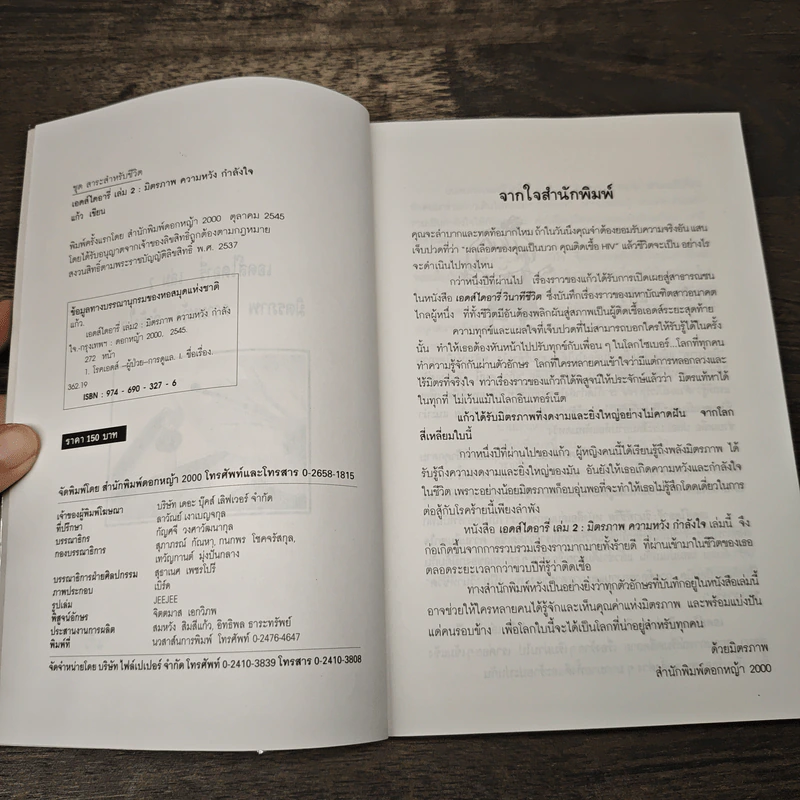 ชุด สาระสำหรับชีวิต
เอดส์ไดอารี่ เล่ม 2 : มิตรภาพ ความหวัง กำลังใจ
แก้ว เขียน
พิมพ์ครั้งแรกโดย สำนักพิมพ์ดอกหญ้า 2000 ตุลาคม 2545
โดยได้รับอนุญาตจากเจ้าของลิขสิทธิ์ถูกต้องตามกฎหมาย
สงวนสิทธิ์ตามพระราชบัญญัติลิขสิทธิ์ พ.ศ. 2537
ข้อมูลทางบรรณานุกรมของหอสมุดแห่งชาติ
แก้ว.
เอดส์ไดอารี่ เล่ม2 : มิตรภาพ ความหวัง กำลัง
ใจ.-กรุงเทพฯ : ดอกหญ้า 2000, 2545.
272 หน้า
1. โรคเอดส์ --ผู้ป่วย--การดูแล. I. ชื่อเรื่อง.
362.19
ISBN : 974 - 690 - 327 - 6
ราคา 150 บาท
จัดพิมพ์โดย สำนักพิมพ์ดอกหญ้า 2000 โทรศัพท์และโทรสาร 0-2658-1815
เจ้าของผู้พิมพ์โฆษณา บริษัท เดอะ บุ๊คส์ เลิฟเวอร์ จำกัด
ที่ปรึกษา ลาวัณย์ เงาเบญจกุล
บรรณาธิกร กัญศจี วงศาวัฒนากุล
กองบรรณาธิการ สุภาภรณ์ กัณหา, กนกพร โชคจรัสกุล,
เทวัญกานต์ มุ่งปั่นกลาง
บรรณาธิการฝ่ายศิลปกรรม สุธาเนศ เพชรโปรี
ภาพประกอบ เบิร์ด
รูปเล่ม JEEJEE
พิสูจน์อักษร จิตตมาส เอกวิภพ
ประสานงานการผลิต สมหวัง สิมสีแก้ว, อิทธิพล ธาระทรัพย์
พิมพ์ที่ นวสาส์นการพิมพ์ โทรศัพท์ 0-2476-4647
จัดจำหน่ายโดย บริษัท ไฟล์เปเปอร์ จำกัด โทรศัพท์ 0-2410-3839 โทรสาร 0-2410-3808
จากใจสำนักพิมพ์
คุณจะลำบากและทดท้อมากไหม ถ้าในวันนึงคุณจำต้องยอมรับความจริงอัน แสน
เจ็บปวดที่ว่า "ผลเลือดของคุณเป็นบวก คุณติดเชื้อ HIV" แล้วชีวิตจะเป็น อย่างไร
จะดำเนินไปทางไหน
กว่าหนึ่งปีที่ผ่านไป เรื่องราวของแก้วได้รับการเปิดเผยสู่สาธารณชน
ในหนังสือ เอดส์ไดอารี่ วินาทีชีวิต ซึ่งบันทึกเรื่องราวของมหาบัณฑิตสาวอนาคต
ไกลผู้หนึ่ง ที่ทั้งชีวิตมีอันต้องพลิกผันสู่สภาพเป็นผู้ติดเชื้อเอดส์ระยะสุดท้าย
ความทุกข์และแผลใจที่เจ็บปวดที่ไม่สามารถบอกใครให้รับรู้ได้ในครั้ง
นั้น ทำให้เธอต้องหันหน้าไปปรับทุกข์กับเพื่อน ๆ ในโลกไซเบอร์...โลกที่ทุกคน
ทำความรู้จักกันผ่านตัวอักษร โลกที่ใครหลายคนเข้าใจว่ามีแต่การหลอกลวงและ
ไร้มิตรที่จริงใจ ทว่าเรื่องราวของแก้วก็ได้พิสูจน์ให้ประจักษ์แล้วว่า มิตรแท้หาได้
ในทุกที่ ไม่เว้นแม้ในโลกอินเทอร์เน็ต
แก้วได้รับมิตรภาพที่งดงามและยิ่งใหญ่อย่างไม่คาดฝัน จากโลก
สี่เหลี่ยมใบนี้
กว่าหนึ่งปีที่ผ่านไปของแก้ว ผู้หญิงคนนี้ได้เรียนรู้ถึงพลังมิตรภาพ ได้
รับรู้ถึงความงดงามและยิ่งใหญ่ของมัน อันยังให้เธอเกิดความหวังและกำลังใจ
ในชีวิต เพราะอย่างน้อยมิตรภาพก็อบอุ่นพอที่จะทำให้เธอไม่รู้สึกโดดเดี่ยวในการ
ต่อสู้กับโรคร้ายนี้เพียงลำพัง
หนังสือ เอดส์ไดอารี่ เล่ม 2 : มิตรภาพ ความหวัง กำลังใจ เล่มนี้ จึง
ก่อเกิดขึ้นจากการรวบรวมเรื่องราวมากมายทั้งร้ายดี ที่ผ่านเข้ามาในชีวิตของเธอ
ตลอดระยะเวลากว่าขวบปีที่รู้ว่าติดเชื้อ
ทางสำนักพิมพ์หวังเป็นอย่างยิ่งว่าทุกตัวอักษรที่บันทึกอยู่ในหนังสือเล่มนี้
อาจช่วยให้ใครหลายคนได้รู้จักและเห็นคุณค่าแห่งมิตรภาพ และพร้อมแบ่งปัน
แด่คนรอบข้าง เพื่อโลกใบนี้จะได้เป็นโลกที่น่าอยู่สำหรับทุกคน
ด้วยมิตรภาพ
สำนักพิมพ์ดอกหญ้า 2000